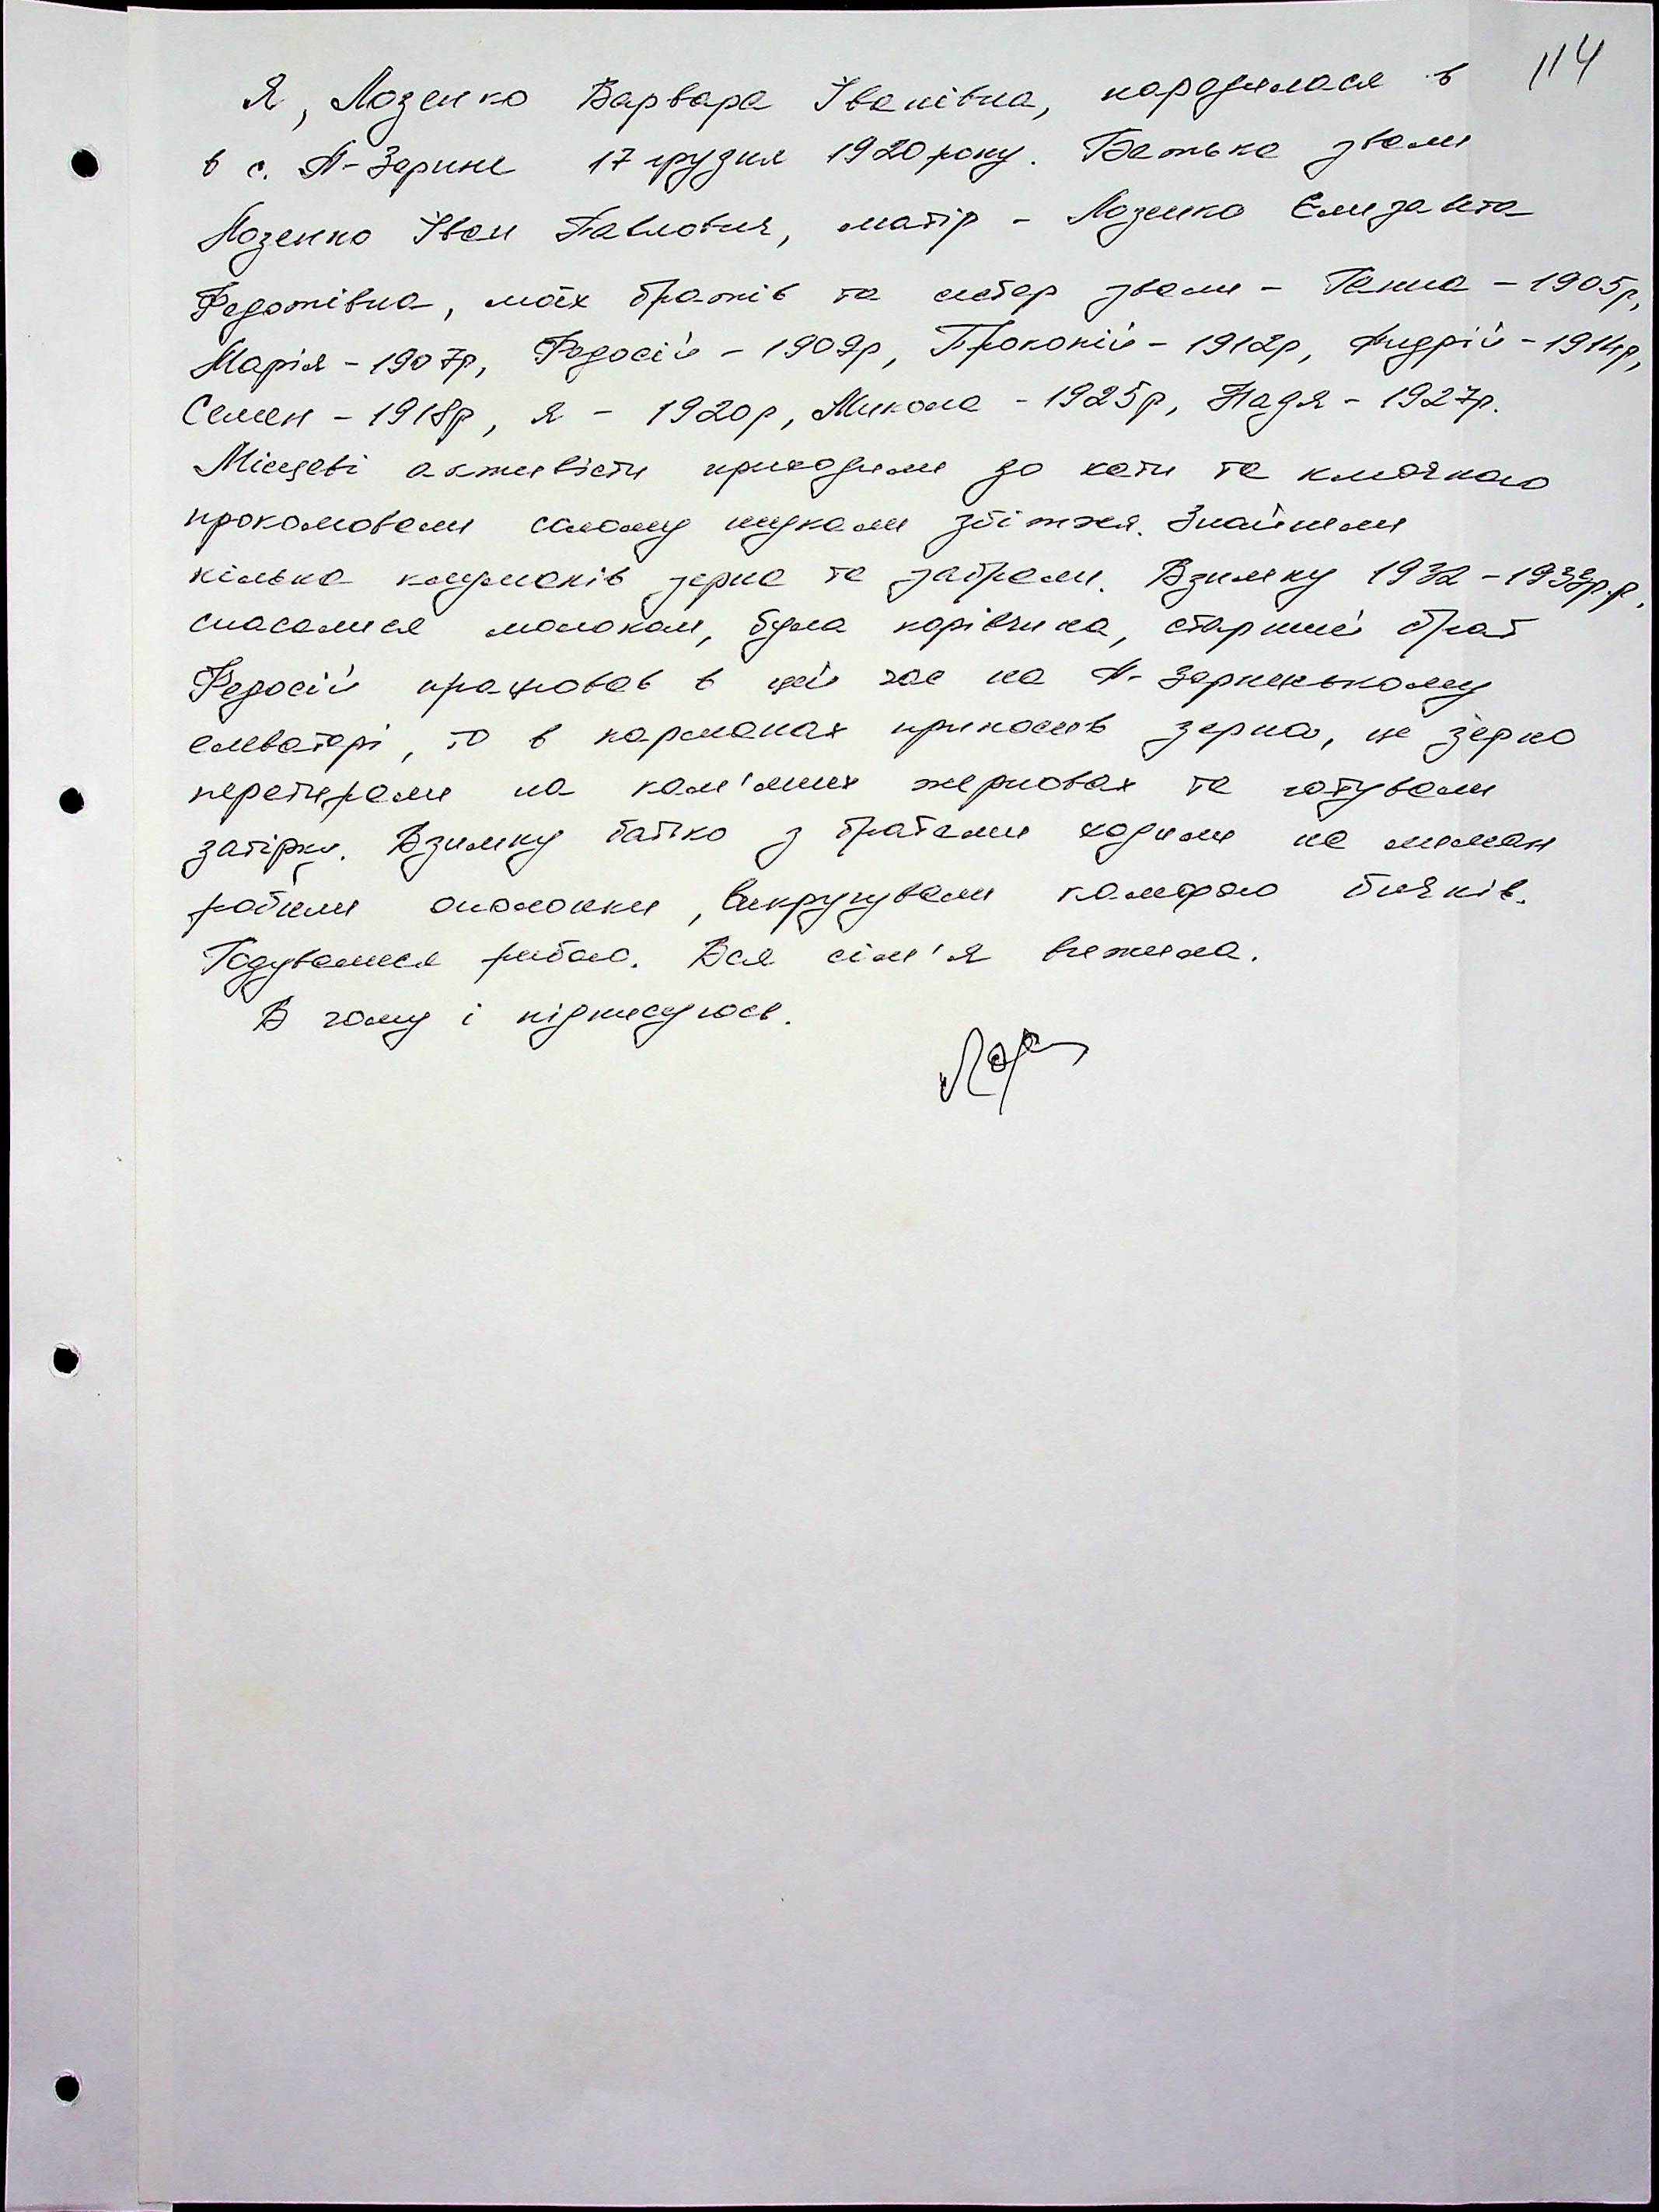 114
Я, Лозенко Варвара Іванівна, народилася в
в с. А-Зорине 17 грудня 1920 року. Батька звали
Лозенко Іван Павлович, матір - Лозенко Єлизавета
Федотівна, моїх братів та сестер звали - Ганна - 1905р,
Марія - 1907р, Федосій - 1909р, Прокопій - 1912р, Андрій - 1914р,
Семен - 1918р, я - 1920р, Микола - 1925р, Надя - 1927р.
Місцеві активісти приходили до хати та ключкою
проколювали солому шукали збіжжя. Знайшли
кілька клумаків зерна та забрали. Взимку 1932 - 1933р.р.
спасалися молоком, була корівчина, старший брат
Федосій працював в цей час на А-Зоринському
елеваторі, то в карманах приносив зерно, це зерно
перетирали на кам'яних жерновах та готували
затірку. Взимку батько з братами ходили на лиман
робили ополонки, викручували камфою бичків.
Годувалися рибою. Вся сім'я вижила.
В чому і підписуюсь.